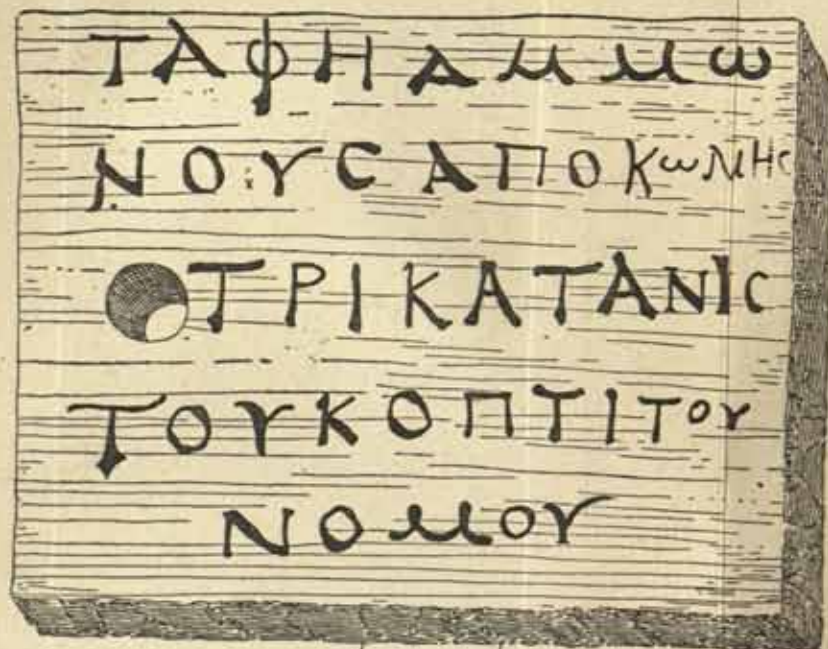 ΤΑΦΗΑΜΜω
ΝΟΥCΑΠΟΚωΜΗC
ΤΡΙΚΑΤΑΝΙC
ΤΟΥΚΟΠΤΙΤΟΥ
ΝΟΜΟΥ